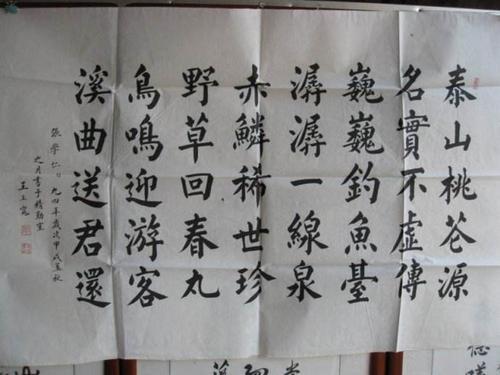 泰山桃花源
名實不虛傳
巍巍釣魚臺
潺潺一線泉
赤鱗稀世珍
野草回春丸
鳥鳴迎游客
溪曲送君還
張學仁
九四年歲次甲戌